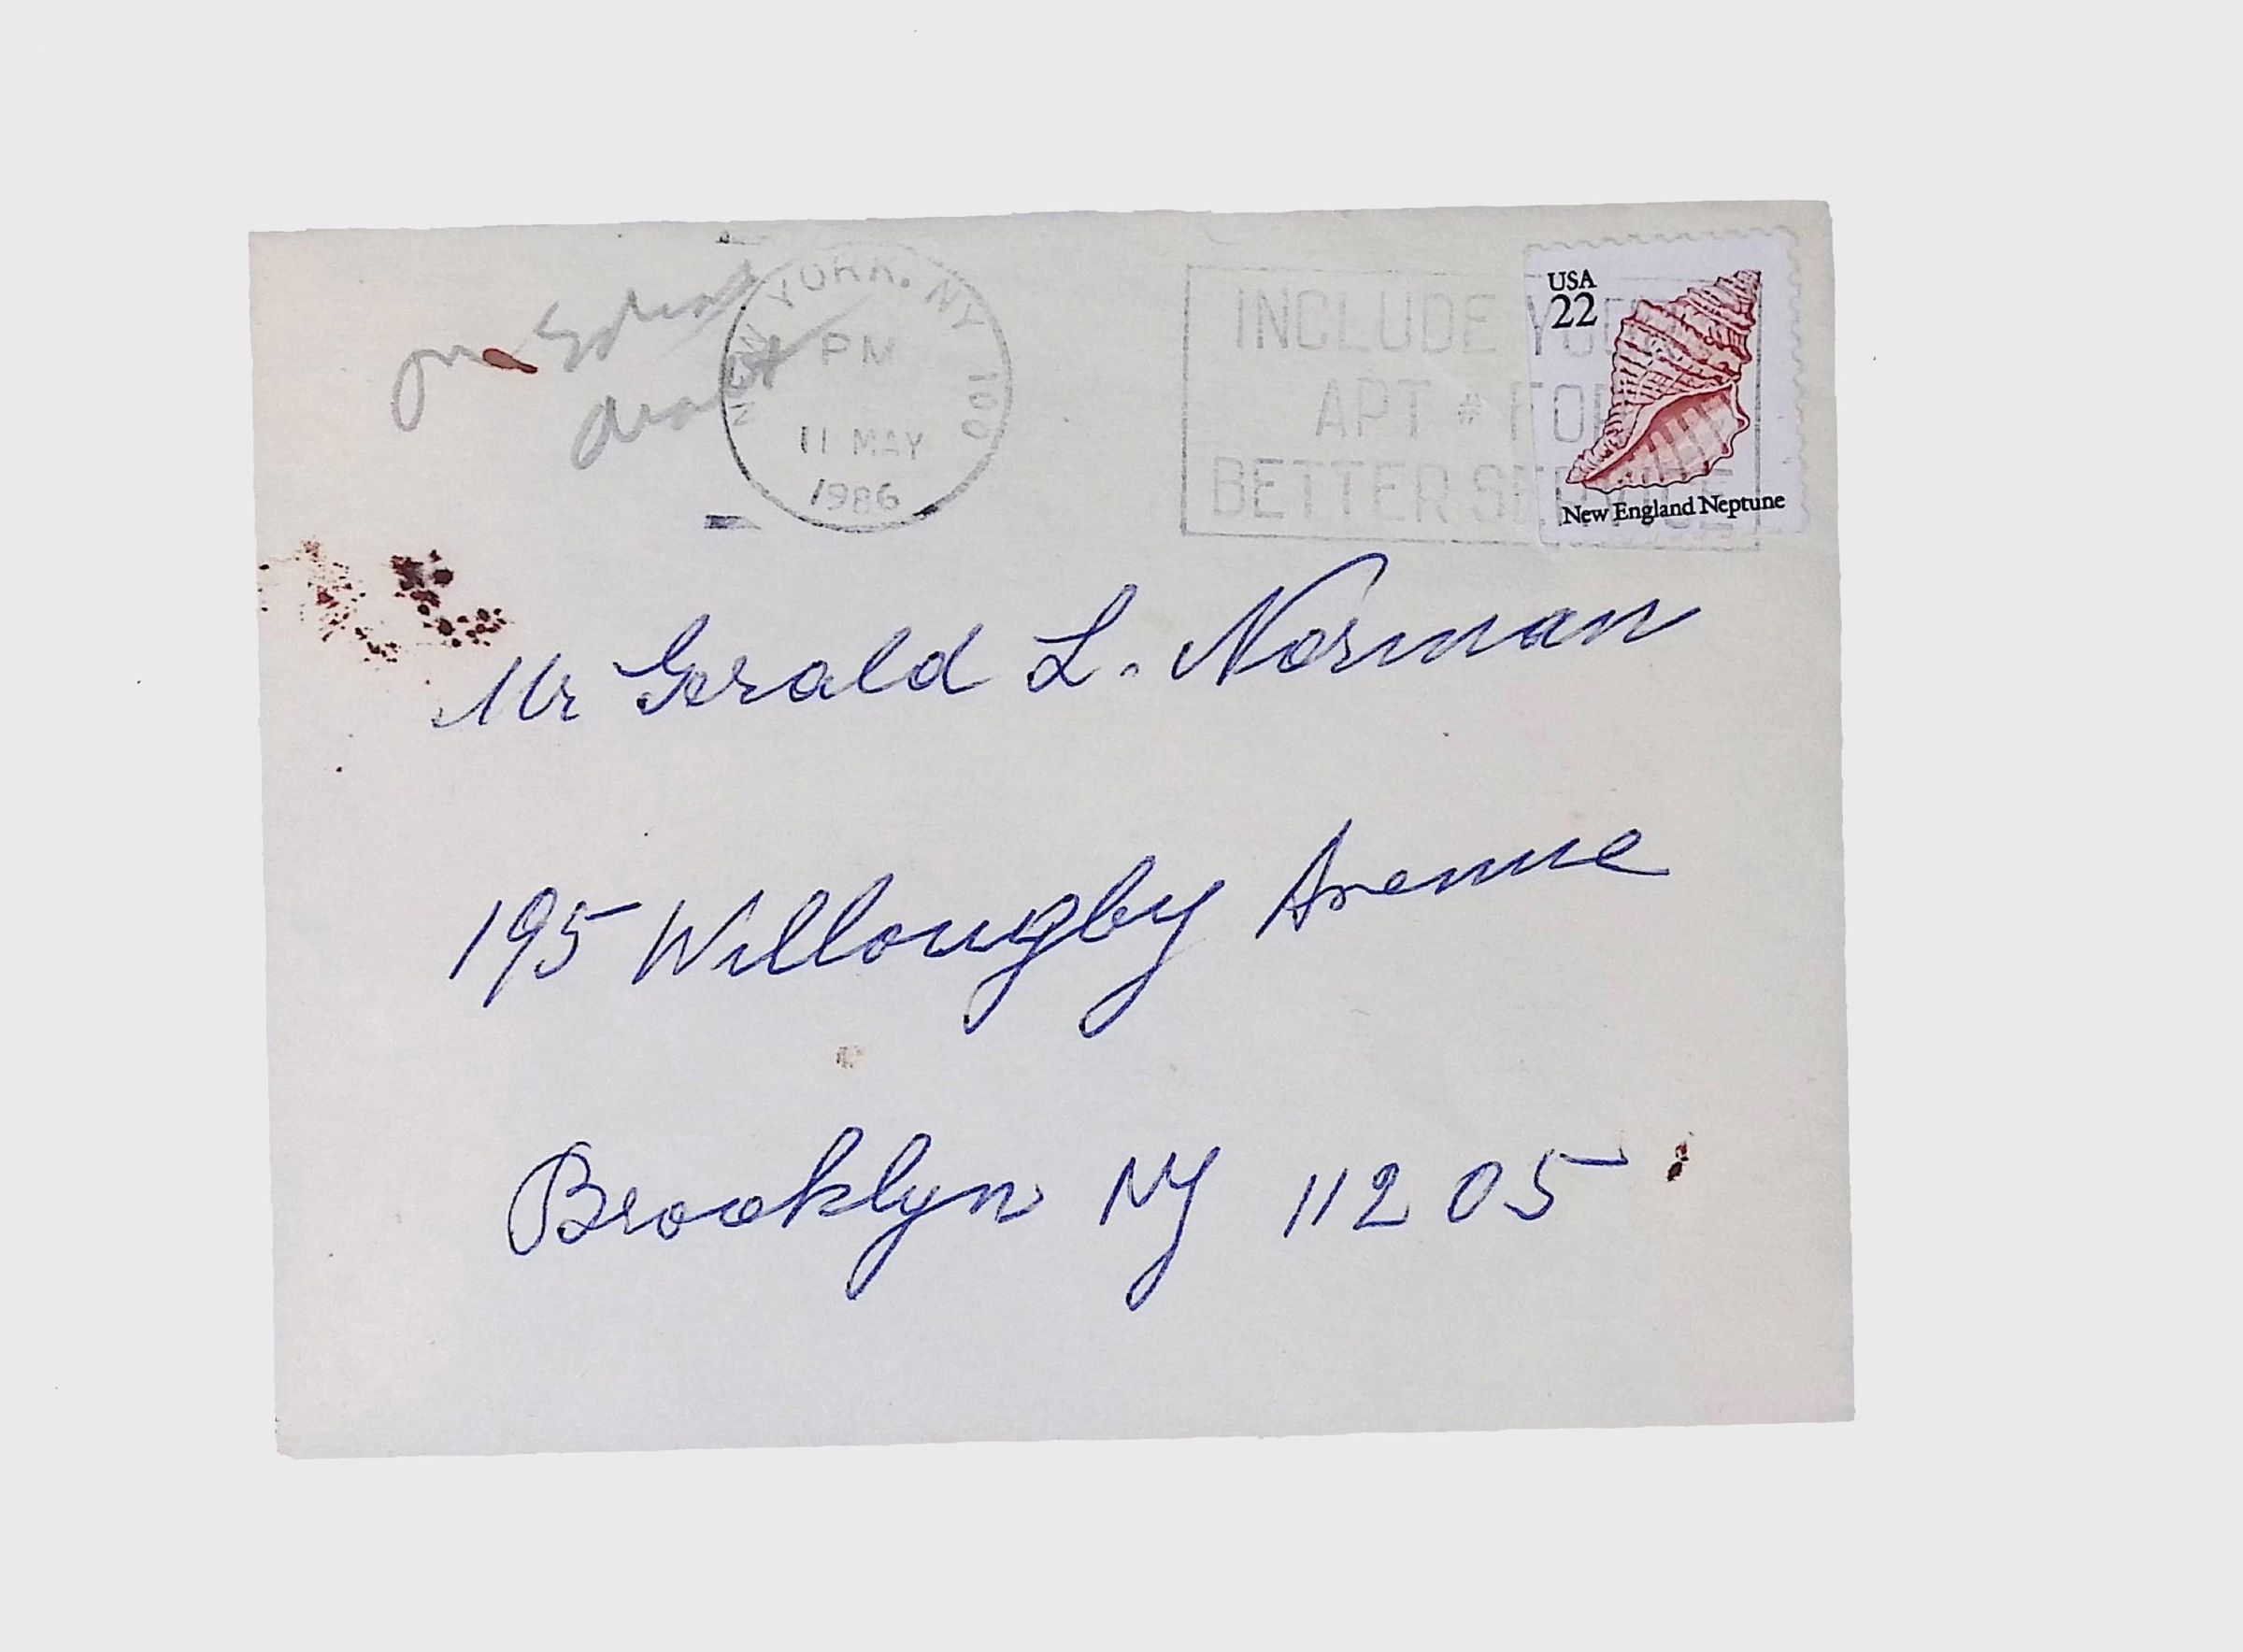 NEW YORK, NY 100
PM
11 MAY
1986
INCLUDE YOUR
APT # FOR
BETTER SERVICE
USA
22
New England Neptune
Mr Gerald L. Norman
195 Willougby Avenue
Brooklyn NY 11205